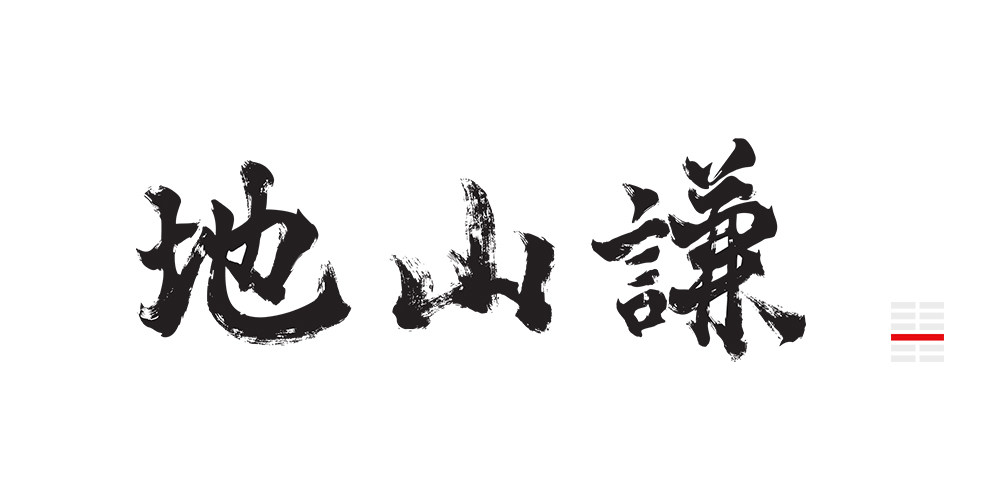 地山謙